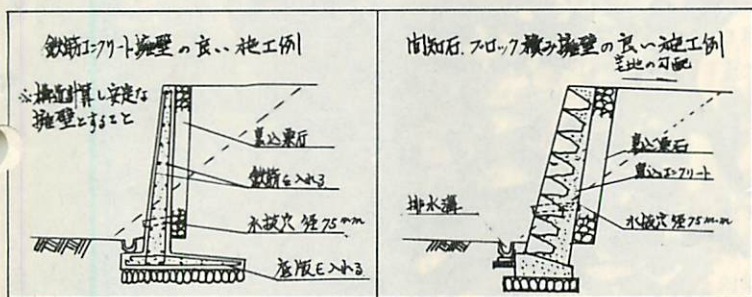 鉄筋コンクリート擁壁の良い施工例
※構造計算し安定な
擁壁とすること
裏込栗石
鉄筋を入れる
水抜穴 径75mm
底版を入れる
間知石、ブロック積み擁壁の良い施工例
宅地の勾配
裏込栗石
裏込コンクリート
排水溝
水抜穴 径75m.m